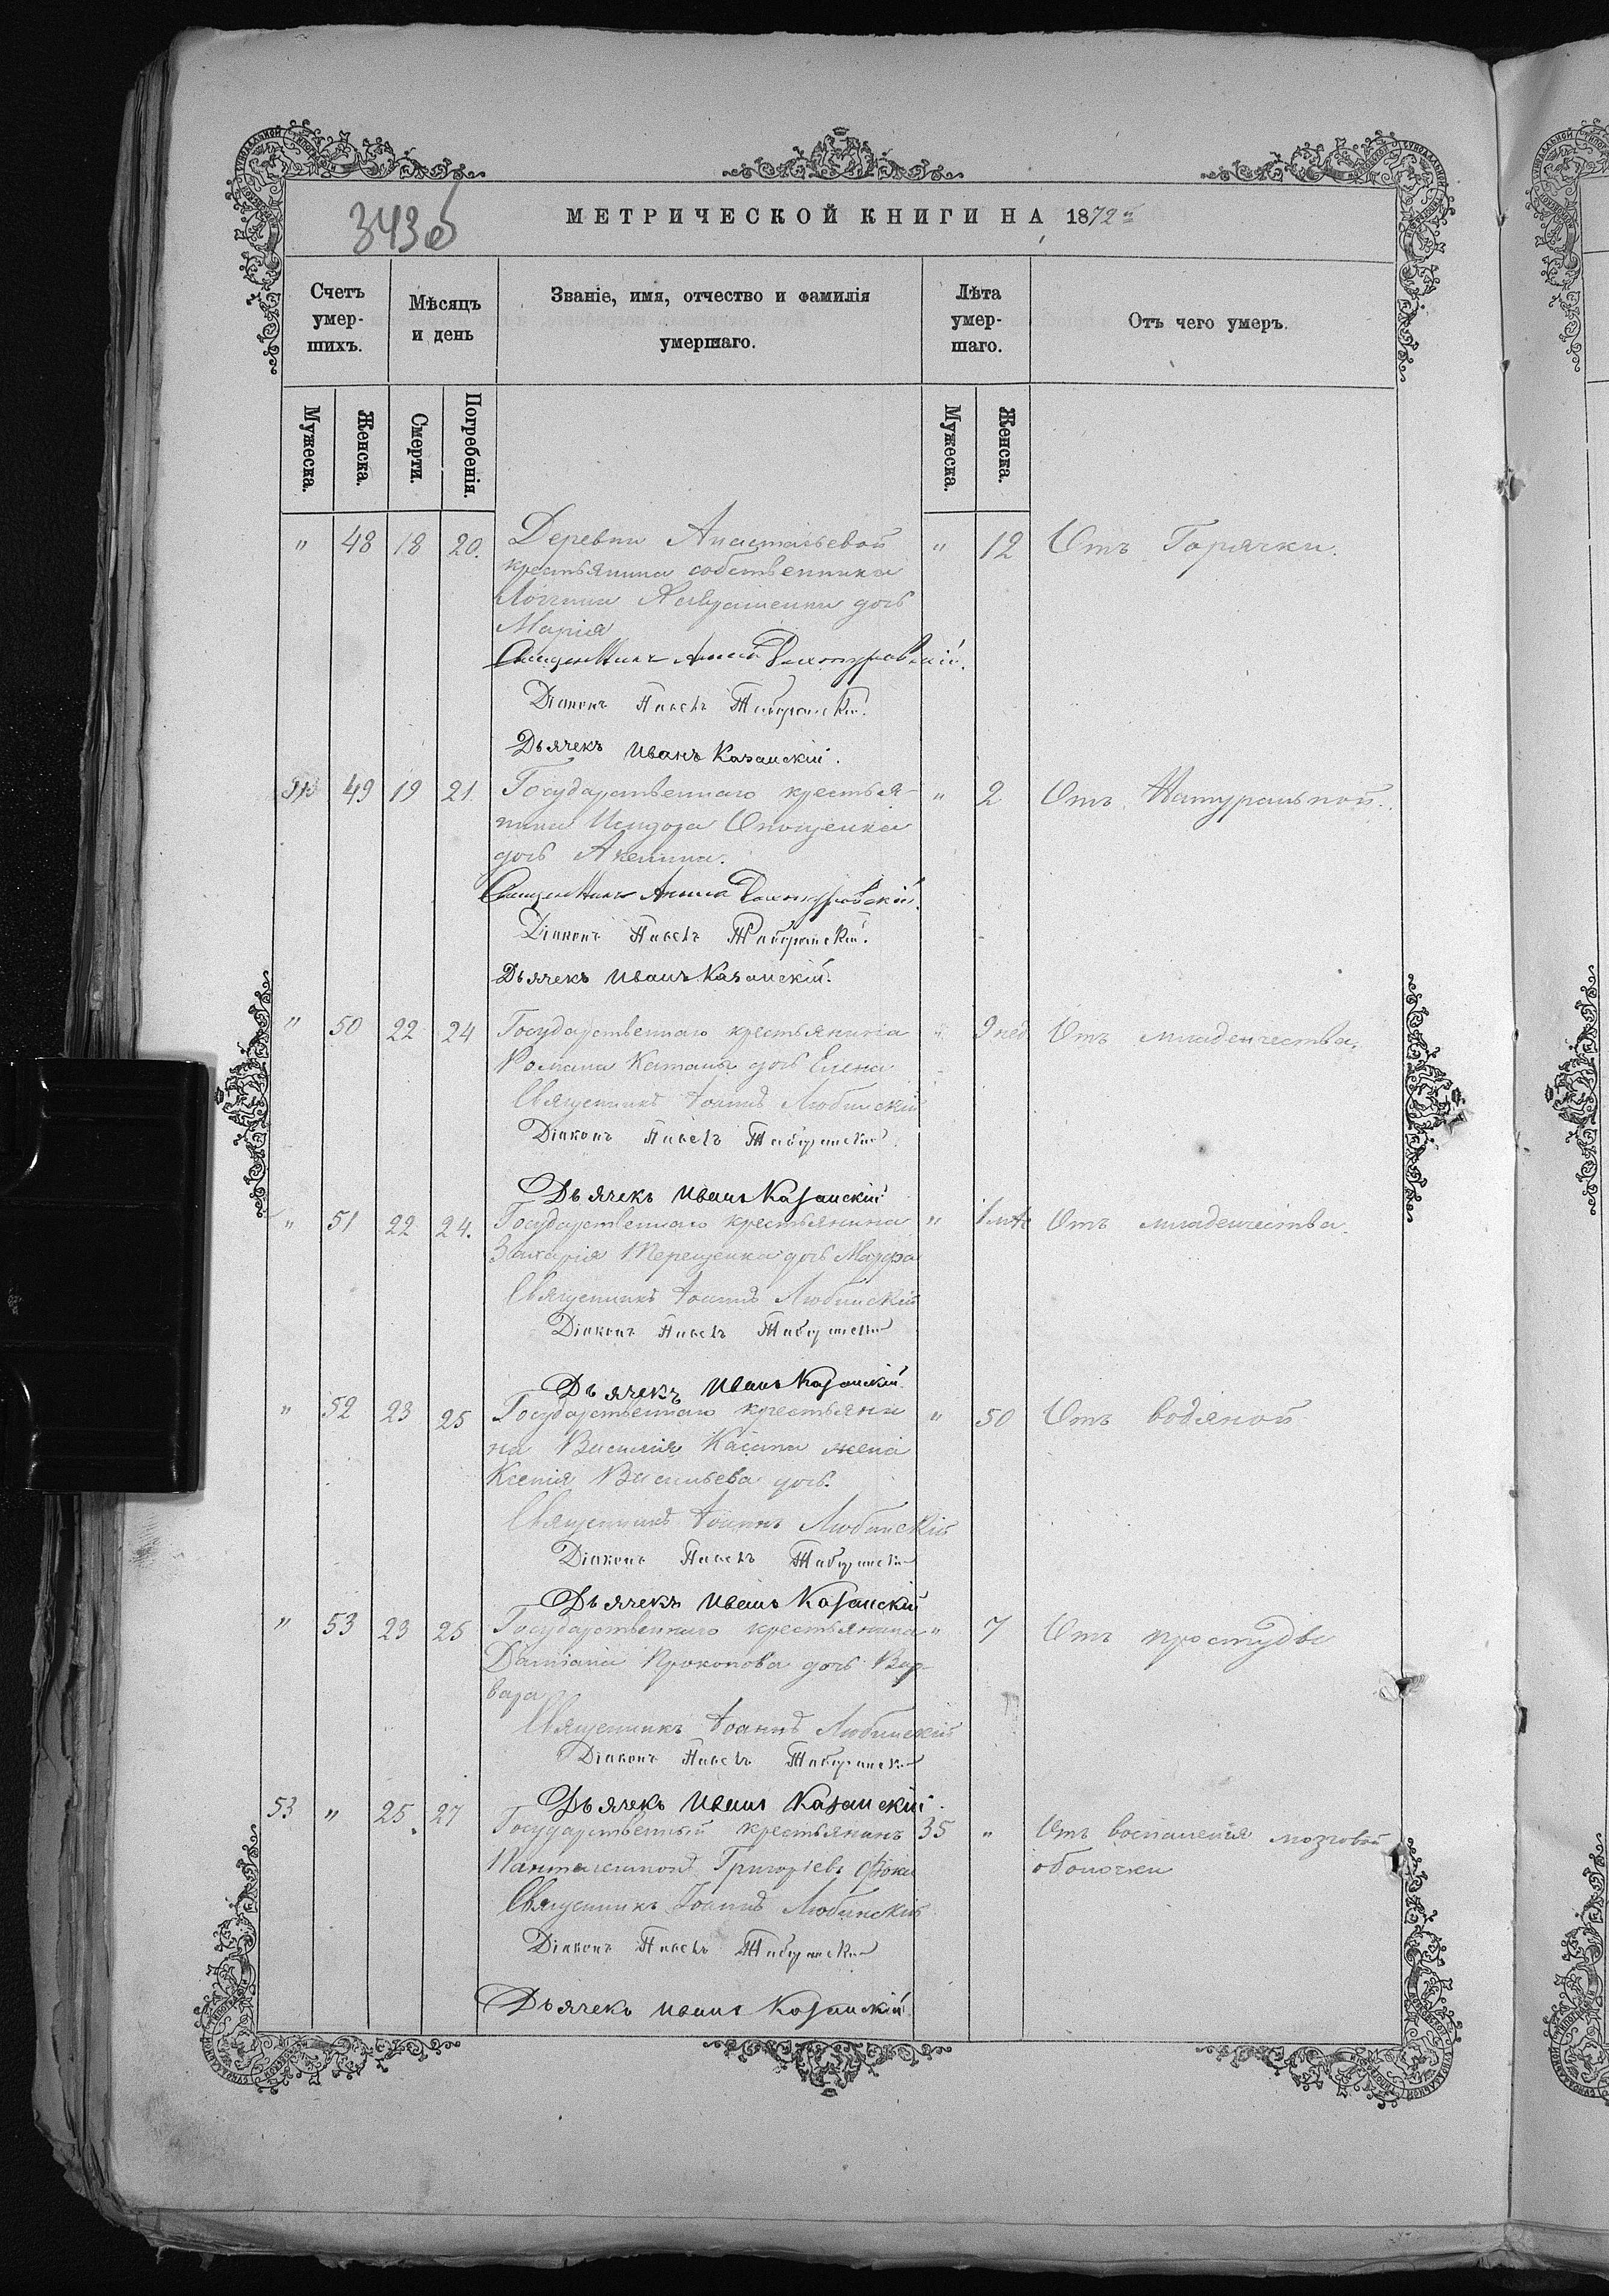 343 об
МЕТРИЧЕСКОЙ КНИГИ НА 1872й
Счетъ умер-шихъ.
Мѣсяцъ и день
Званіе, имя, отчество и фамилія умершаго.
Лѣта умер-шаго.
Отъ чего умеръ.
Мужеска. Женска. Смерти. Погребенія. Мужеска. Женска.
" 48 18 20. Деревни Анастасьевой " 12 Отъ Горячки.
крестьянина собственника
Логгина дочь
Марія
Священникъ
Діаконъ Павелъ
Дьячекъ Иванъ Казанскій.
49 19 21. Государственнаго крестья- " 2 Отъ Натуральной.
нина Исидора Онощенка
дочь Акилина.
Священникъ
Діаконъ Павелъ
Дьячекъ Иванъ Казанскій.
" 50 22 24 Государственнаго крестьянина " 9 нед Отъ младенчества.
Романа Катаны дочь Елена
Священникъ Іоаннъ Любинскій
Діаконъ Павелъ
Дьячекъ Иванъ Казанскій
" 51 22 24. Государственнаго крестьянина " Отъ младенчества
Захарія Терещенка дочь Мавра
Священникъ Іоаннъ Любинскій
Діаконъ Павелъ
Дьячекъ Иванъ Казанскій
" 52 23 25 Государственнаго крестьяни " 50 Отъ водяной
на Василія жена
Ксенія Васильева дочь.
Священникъ Іоаннъ Любинскій
Діаконъ Павелъ
Дьячекъ Иванъ Казанскій
" 53 23 25 Государственнаго крестьянина " 7 Отъ простудѣ
Даміана Прокопова дочь Вар-
вара
Священникъ Іоаннъ Любинскій
Діаконъ Павелъ
Дьячекъ Иванъ Казанскій.
53 " 25. 27 Государственный крестьянинъ 35 " Отъ воспаленія мозговой
Пантелеимонъ Григорьевъ Фока оболочки
Священникъ Іоаннъ Любинскій
Діаконъ Павелъ
Дьячекъ Иванъ Казанскій